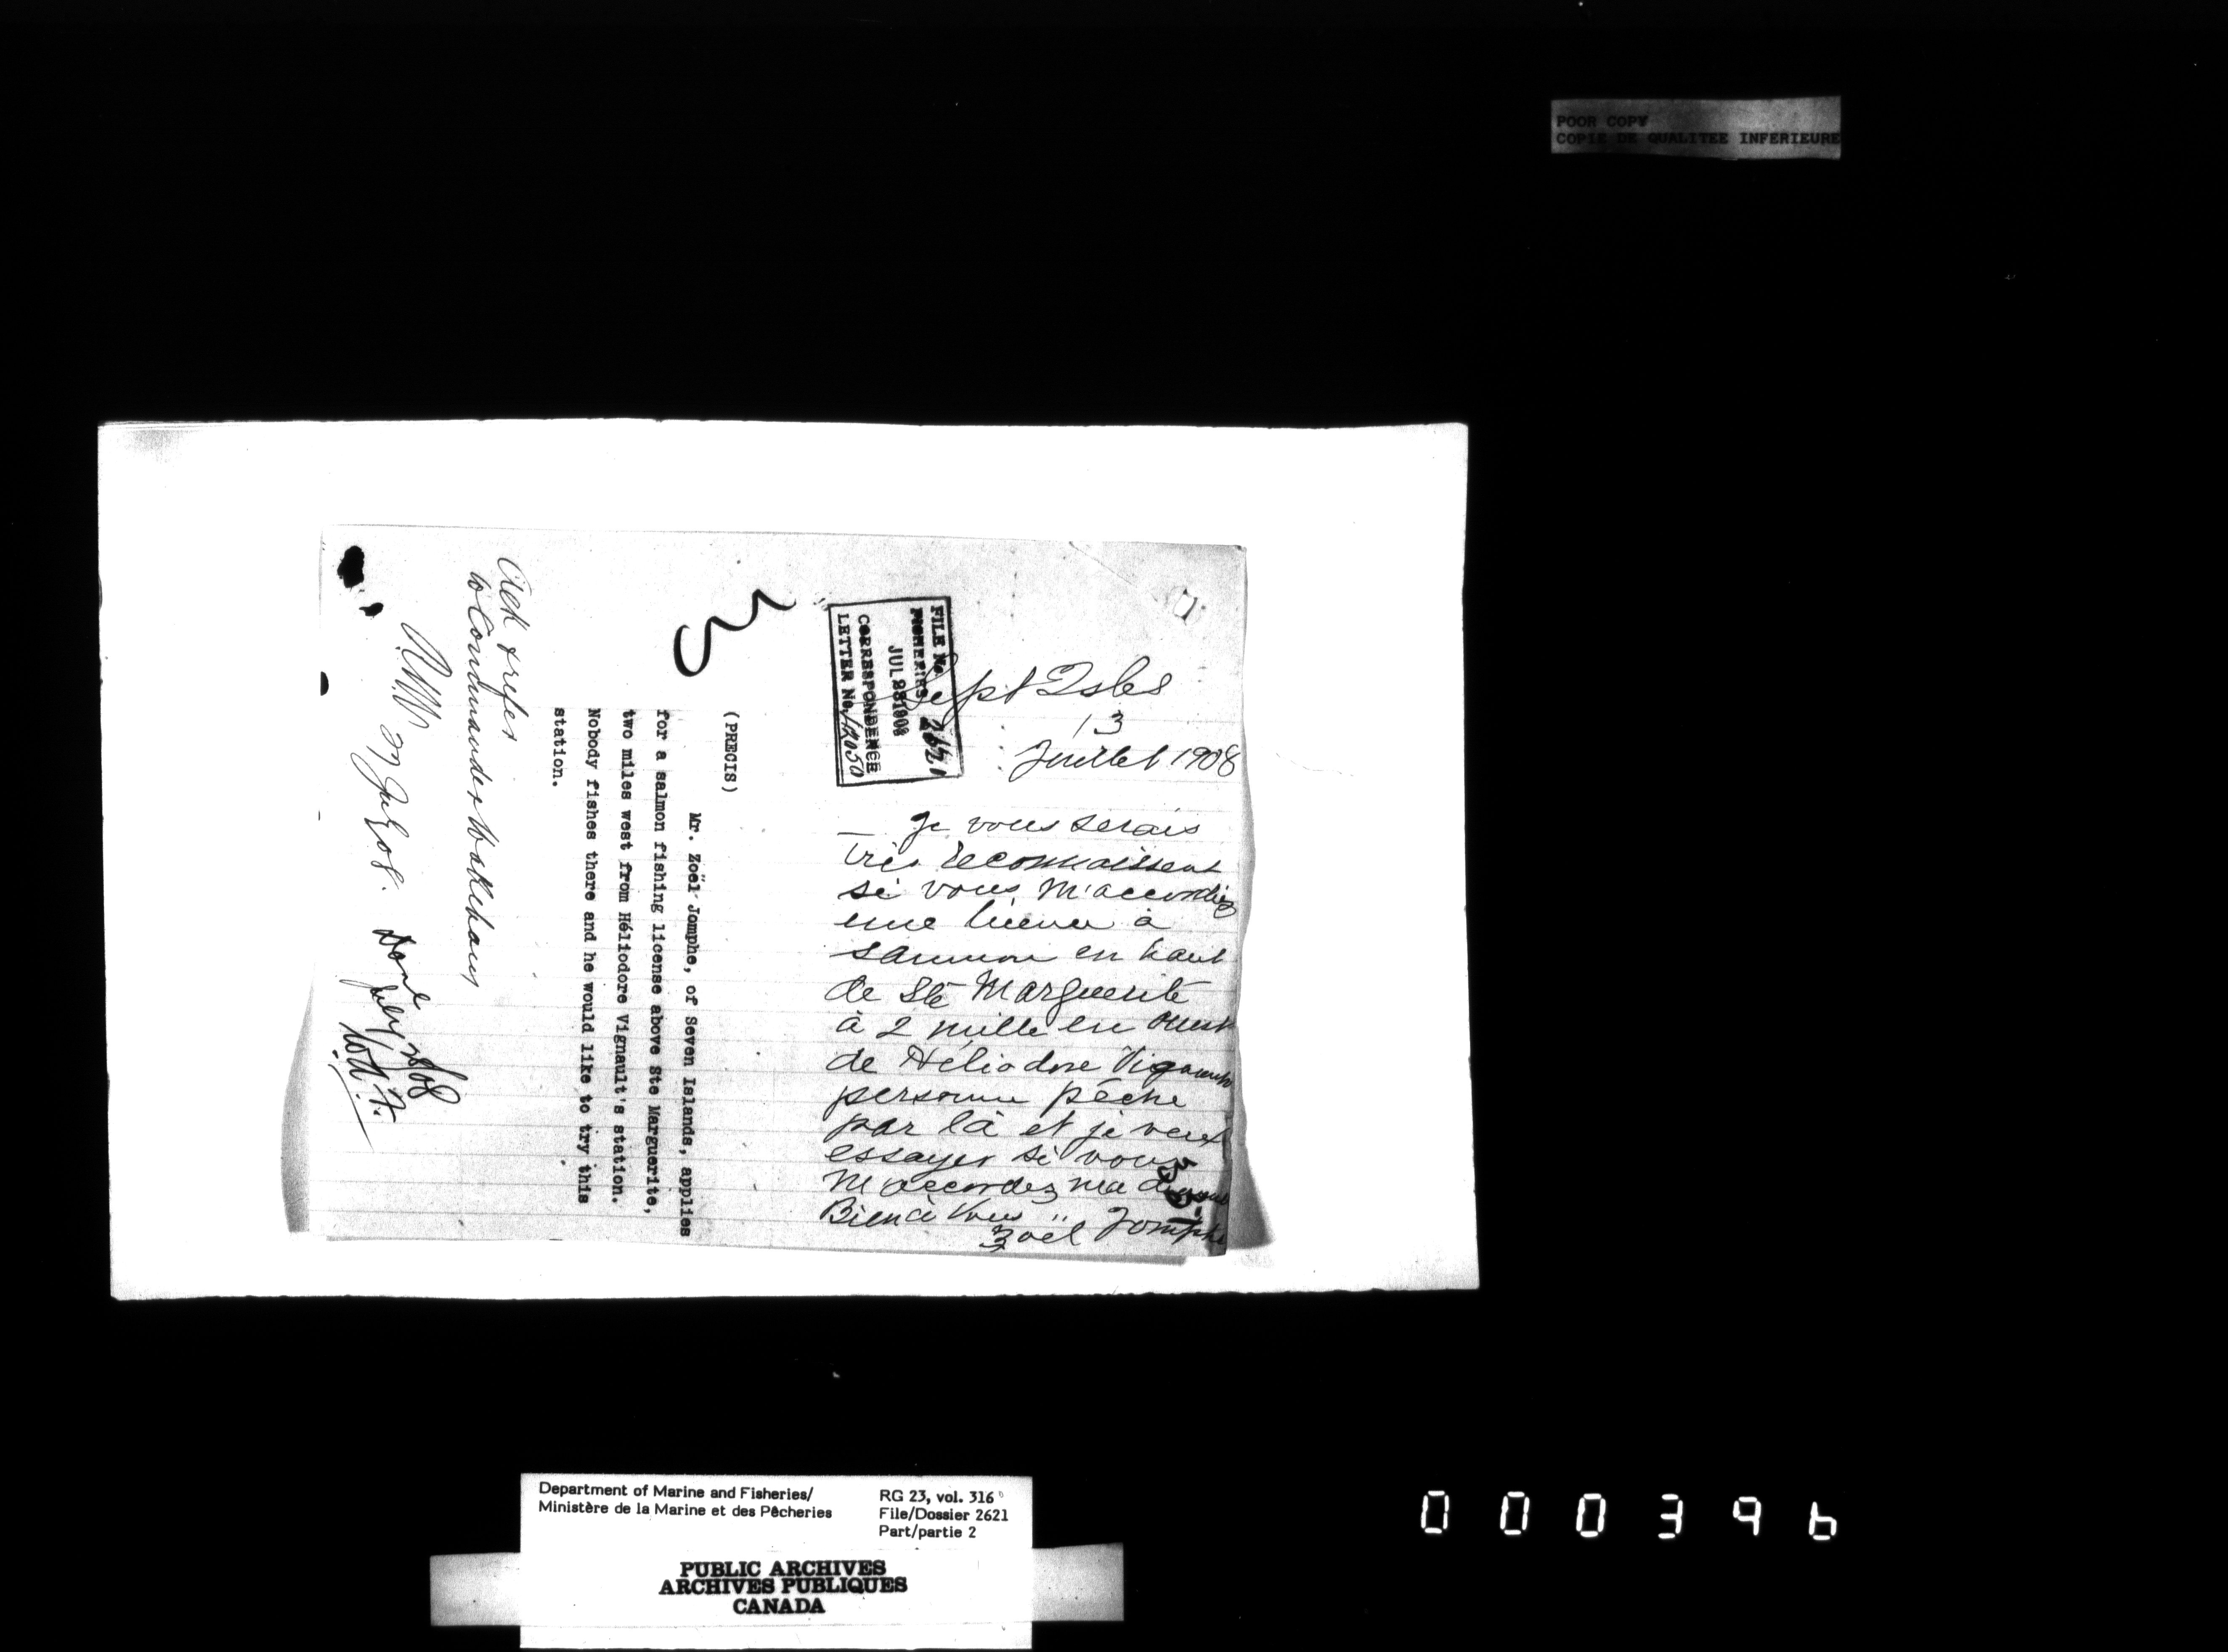 POOR COPY
COPIE DE QUALITEE INFERIEURE
Sept Isles
13
Juillet 1908
Je vous serais
très reconnaissant
si vous m'accordiez
une licence à
saumon en haut
de Ste Marguerite
à 2 mille en ouest
de Héliodore Vignault
personne pêche
par là et je veux
essayer si vous
m'accordez ma demande
Bien à Vous
Zoël Jomphe
FILE No. 2621
FISHERIES
JUL 23 1908
CORRESPONDENCE
LETTER No. 12050
3
(PRECIS)
Mr. Zoël Jomphe, of Seven Islands, applies
for a salmon fishing license above Ste Marguerite,
two miles west from Héliodore Vignault's station.
Nobody fishes there and he would like to try this
station.
Ack & refer
to Commander Wakeham
27 July 08.
Done
Department of Marine and Fisheries/
Ministère de la Marine et des Pêcheries
RG 23, vol. 316
File/Dossier 2621
Part/partie 2
PUBLIC ARCHIVES
ARCHIVES PUBLIQUES
CANADA
000396